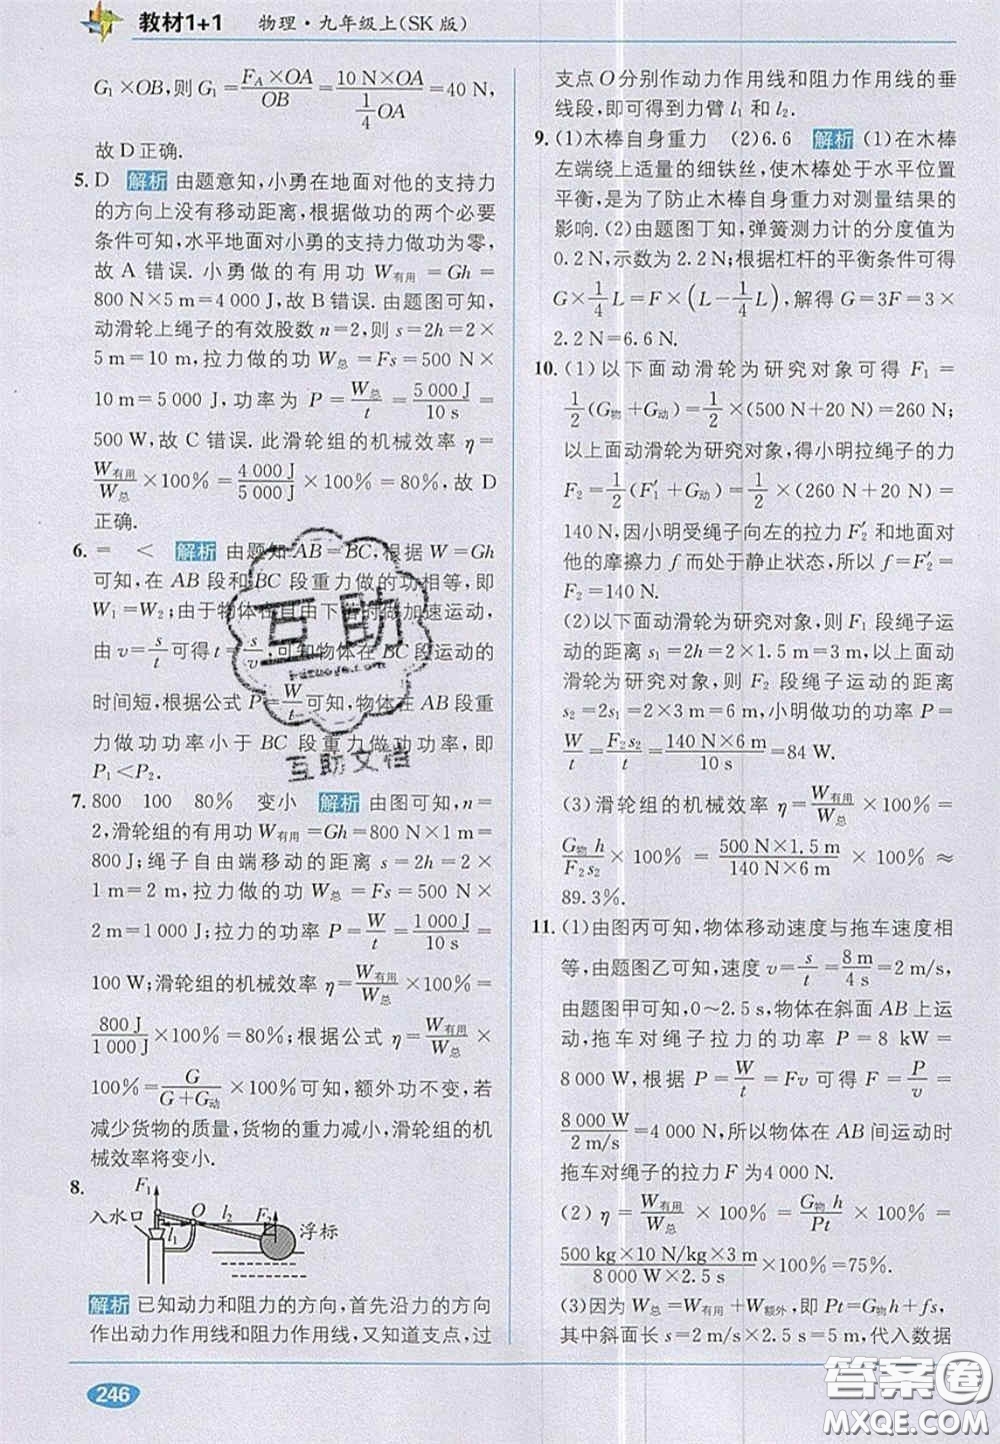 教材1+1 物理·九年级上(SK版)
G₁×OB,则G₁=F_A×OA/OB=10 N×OA/(1/4 OA)=40 N,
故D正确.
5. D 解析 由题意知,小勇在地面对他的支持力
的方向上没有移动距离,根据做功的两个必要
条件可知,水平地面对小勇的支持力做功为零,
故A错误.小勇做的有用功W有用=Gh=
800 N×5 m=4 000 J,故B错误.由题图可知,
动滑轮上绳子的有效股数n=2,则s=2h=2×
5 m=10 m,拉力做的功W总=Fs=500 N×
10 m=5 000 J,功率为P=W总/t=5 000 J/10 s=
500 W,故C错误.此滑轮组的机械效率η=
W有用/W总×100%=4 000 J/5 000 J×100%=80%,故D
正确.
6. = < 解析 由题知AB=BC,根据W=Gh
可知,在AB段和BC段重力做的功相等,即
W₁=W₂;由于物体在自由下落时做加速运动,
由v=s/t可得t=s/v,可知物体在BC段运动的
时间短,根据公式P=W/t可知,物体在AB段重
力做功功率小于BC段重力做功功率,即
P₁<P₂.
7. 800 100 80% 变小 解析 由图可知,n=
2,滑轮组的有用功W有用=Gh=800 N×1 m=
800 J;绳子自由端移动的距离s=2h=2×
1 m=2 m,拉力做的功W总=Fs=500 N×
2 m=1 000 J;拉力做的功率P=W/t=1 000 J/10 s=
100 W;滑轮组的机械效率η=W有用/W总×100%
=800 J/1 000 J×100%=80%;根据公式η=W有用/W总×
100%=G/(G+G动)×100%可知,额外功不变,若
减少货物的质量,货物的重力减小,滑轮组的机
械效率将变小.
8.
F₁ O l₂ F₂
入水口 l₁ 浮标
解析 已知动力和阻力的方向,首先沿力的方向
作出动力作用线和阻力作用线,又知道支点,过
支点O分别作动力作用线和阻力作用线的垂
线段,即可得到力臂l₁和l₂.
9. (1)木棒自身重力 (2)6.6 解析 (1)在木棒
左端绕上适量的细铁丝,使木棒处于水平位置
平衡,是为了防止木棒自身重力对测量结果的
影响.(2)由题图丁知,弹簧测力计的分度值为
0.2 N,示数为2.2 N;根据杠杆的平衡条件可得
G×1/4 L=F×(L−1/4 L),解得G=3F=3×
2.2 N=6.6 N.
10. (1)以下面动滑轮为研究对象可得F₁=
1/2(G物+G动)=1/2×(500 N+20 N)=260 N;
以上面动滑轮为研究对象,得小明拉绳子的力
F₂=1/2(F₁′+G动)=1/2×(260 N+20 N)=
140 N,因小明受绳子向左的拉力F₂′和地面对
他的摩擦力f而处于静止状态,所以f=F₂′=
F₂=140 N.
(2)以下面动滑轮为研究对象,则F₁段绳子运
动的距离s₁=2h=2×1.5 m=3 m;以上面动滑
轮为研究对象,则F₂段绳子运动的距离
s₂=2s₁=2×3 m=6 m,小明做功的功率P=
W/t=F₂s₂/t=140 N×6 m/10 s=84 W.
(3)滑轮组的机械效率η=W有用/W总×100%=
G物h/F₂s₂×100%=500 N×1.5 m/140 N×6 m×100%≈
89.3%.
11. (1)由图丙可知,物体移动速度与拖车速度相
等,由题图乙可知,速度v=s/t=8 m/4 s=2 m/s,
由题图甲可知,0~2.5 s,物体在斜面AB上运
动,拖车对绳子拉力的功率P=8 kW=
8 000 W,根据P=W/t=Fv可得F=P/v=
8 000 W/2 m/s=4 000 N,所以物体在AB间运动时
拖车对绳子的拉力F为4 000 N.
(2)η=W有用/W总×100%=G物h/Pt×100%=
500 kg×10 N/kg×3 m/8 000 W×2.5 s×100%=75%.
(3)因为W总=W有用+W额外,即Pt=G物h+fs,
其中斜面长s=2 m/s×2.5 s=5 m,代入数据
246
互助
互助文档
答案圈
MXQE.COM